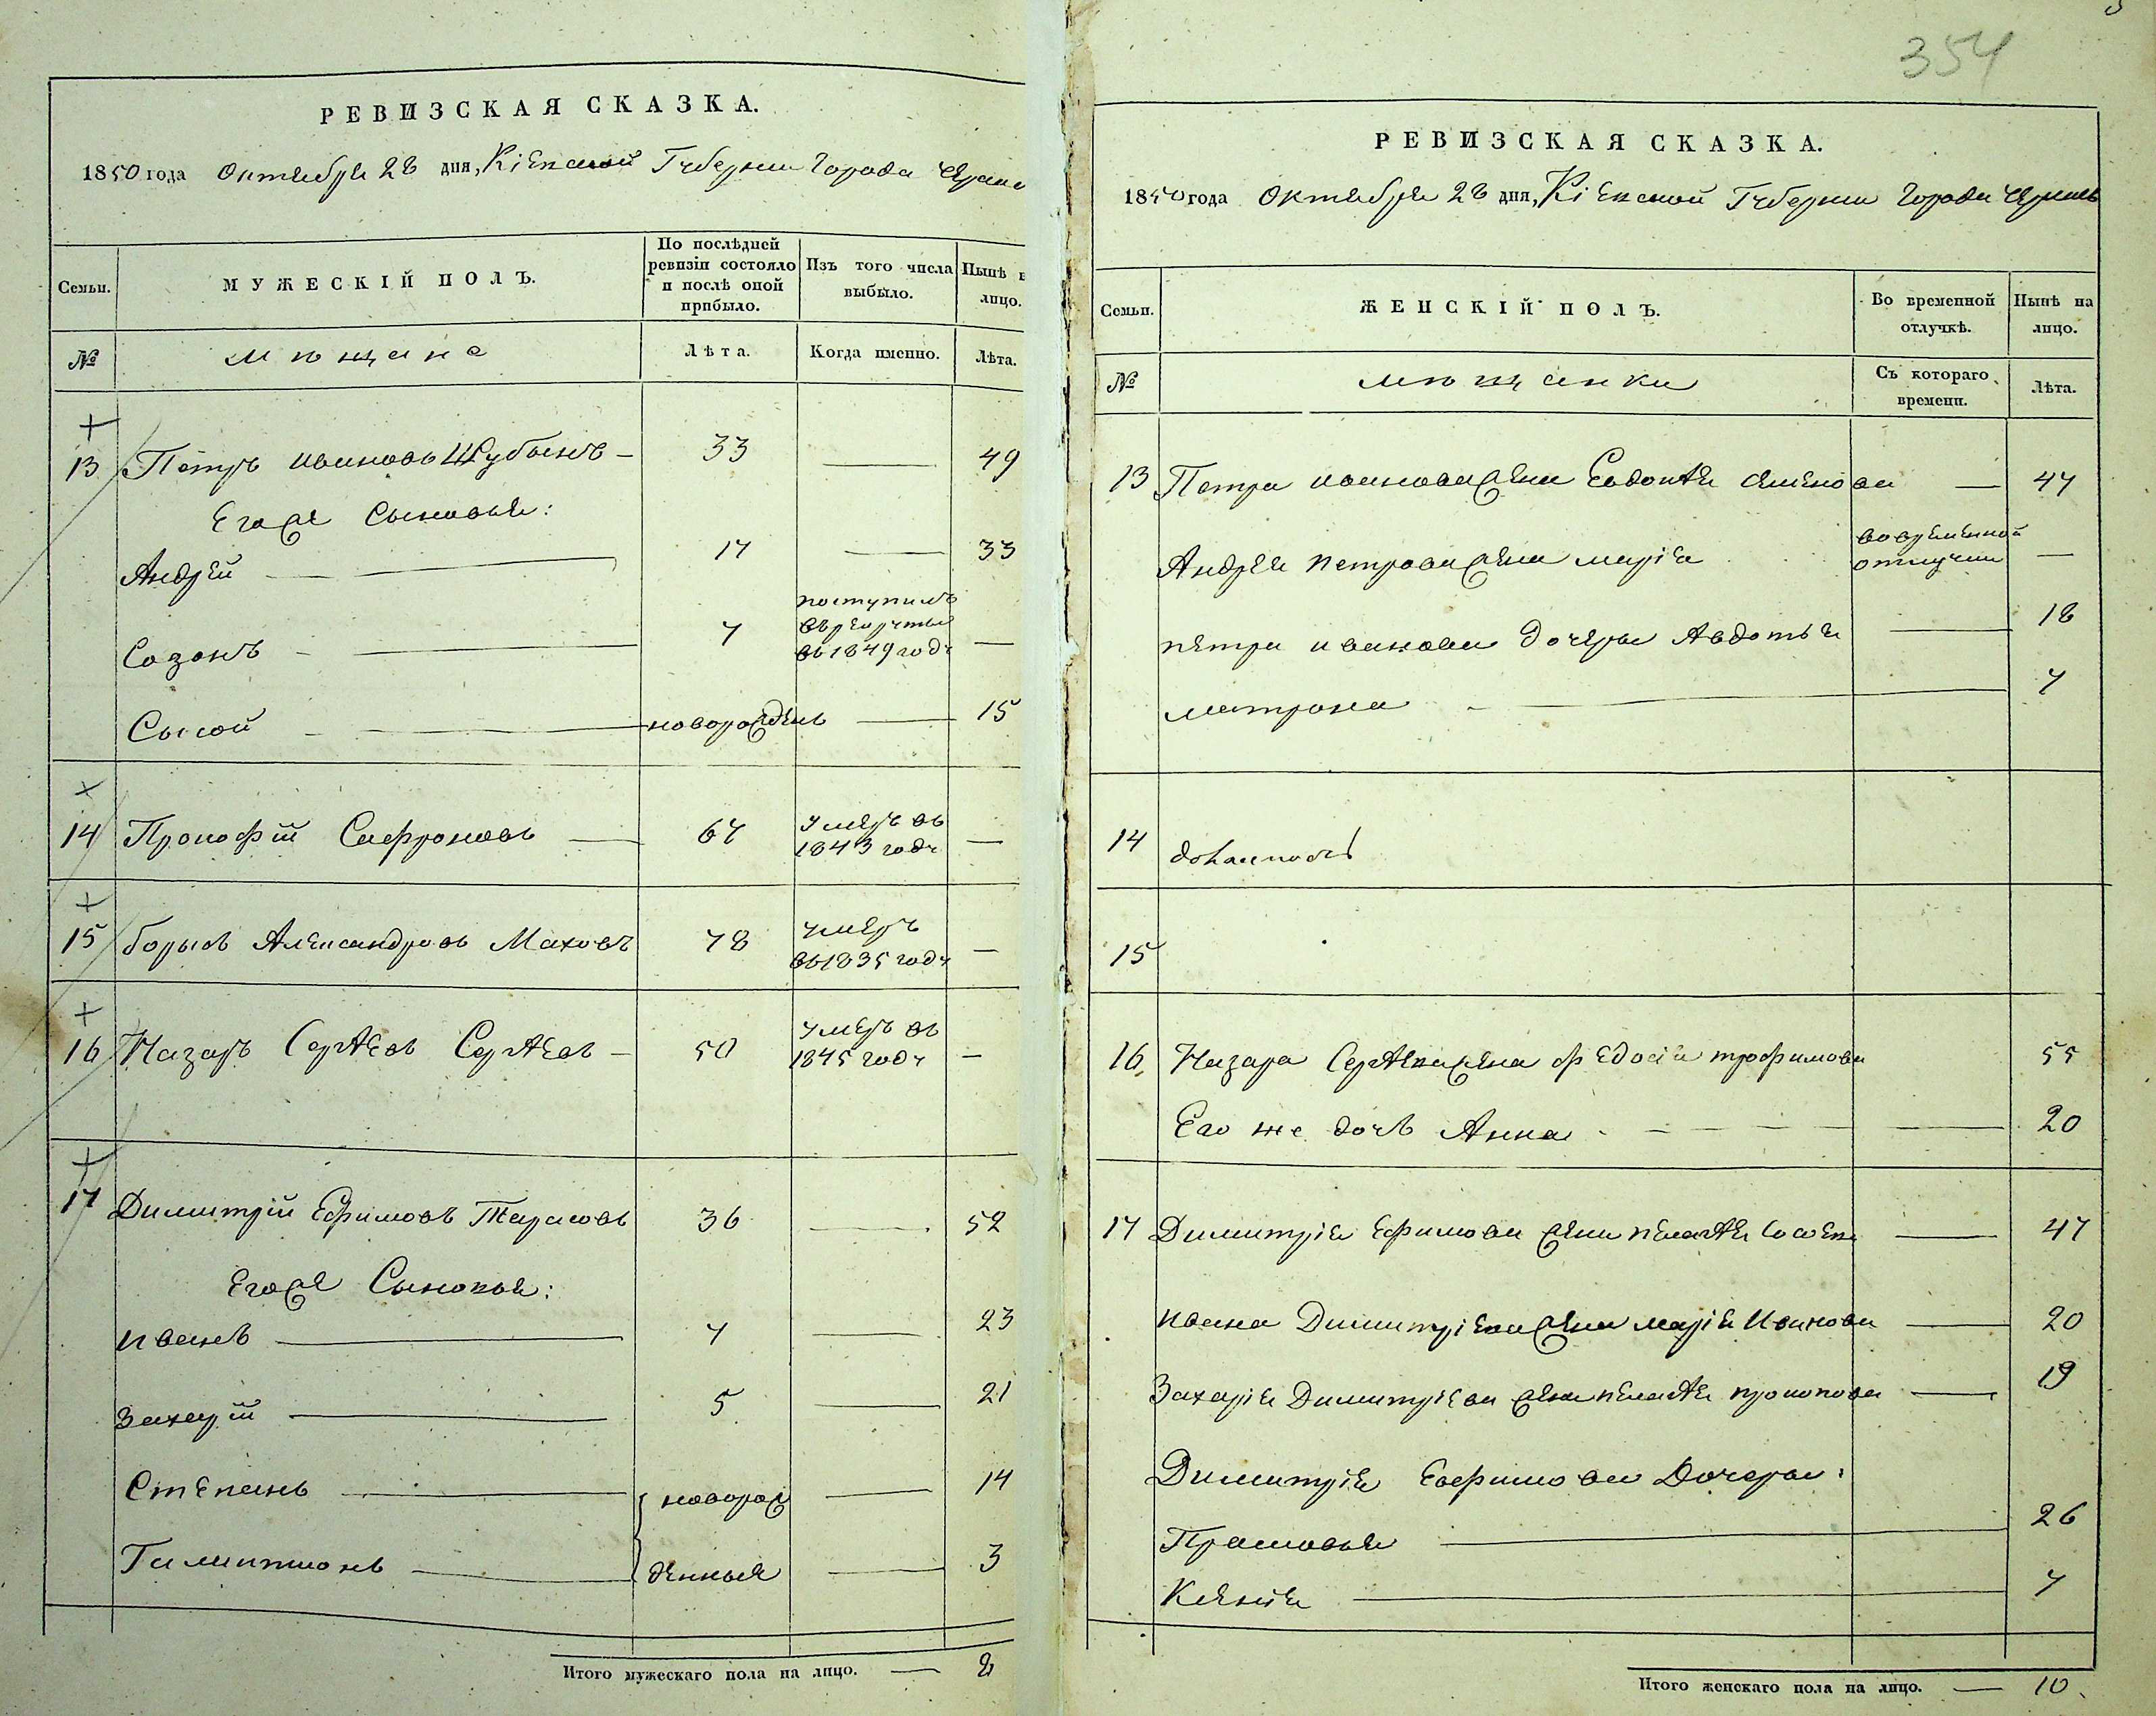 РЕВИЗСКАЯ СКАЗКА.
1850 года Октября 28 дня, Кіевской Губерніи Города
Семьи.
МУЖЕСКІЙ ПОЛЪ.
По послѣдней ревизіи состояло и послѣ оной прибыло.
Изъ того числа выбыло.
Нынѣ н лицо.
№
мѣщане
Лѣта.
Когда именно.
Лѣта.
13 Петръ Ивановъ Шубинъ — 33 — 49
Егоже Сыновья:
Андрей — 17 — 33
Созонъ — 7 поступилъ въ рекруты въ 1849 году —
Сысой — новорожденъ — 15
14 Прокофій Сафроновъ — 67 умеръ въ 1843 году —
15 Борысъ Александровъ Маховъ 78 умеръ въ 1835 году —
16 Назаръ Сергѣевъ Сергѣевъ — 50 умеръ въ 1845 году —
17 Димитрій Ефимовъ Тарасовъ 36 — 52
Егоже Сыновья:
Иванъ — 7 — 23
Захарій — 5 — 21
Степанъ — новорож — 14
Галактіонъ — денные — 3
Итого мужескаго пола на лицо. — 8
354
РЕВИЗСКАЯ СКАЗКА.
1850 года Октября 28 дня, Кіевской Губерніи Города
Семьи.
ЖЕНСКІЙ ПОЛЪ.
Во временной отлучкѣ.
Нынѣ на лицо.
№
мѣщанки
Съ котораго времени.
Лѣта.
13 Петра Иванова жена Евдокѣя Семенова — 47
Андрея Петрова жена Марія во временной отлучки —
Петра Иванова дочеры Авдотья — 18
Матрона — 7
14
15
16 Назара Сергѣева жена Федосія Трофимова 55
Его же дочь Анна — 20
17 Димитрія Ефимова жена Пелагѣя — 47
Ивана Димитріева жена Марія Иванова — 20
Захарія Димитріева жена Пелагѣя Прокопова — 19
Димитрія Ефимова Дочеры:
Прасковья — 26
Ксенія — 7
Итого женскаго пола на лицо. — 10.